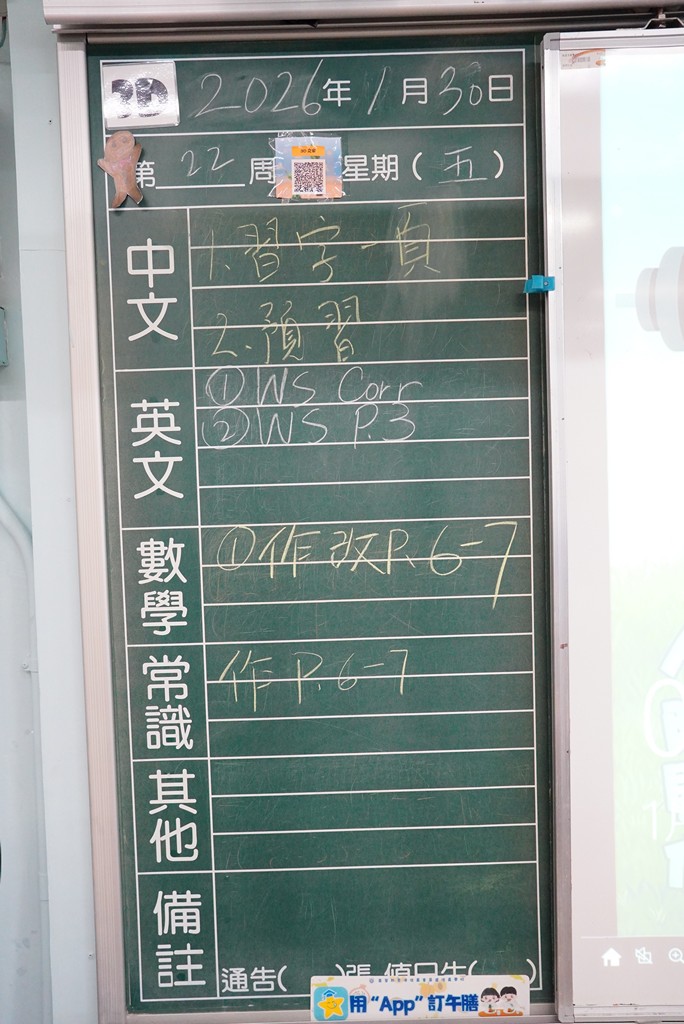 3D 2026年1月30日
第22周 星期(五)
中文
1.習字一頁
2.預習
英文
①WS Corr
②WS P.3
數學
①作改P.6-7
常識
作P.6-7
其他
備註
通告( )張 值日生( )
用“App”訂午膳